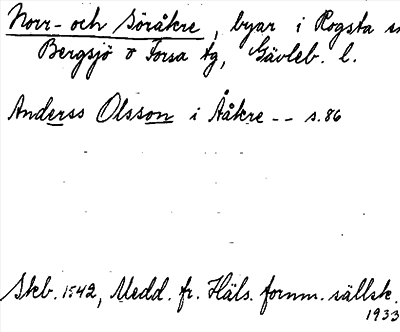 Norr- och Söråkre, byar i Rogsta sn
Bergsjö o Forsa tg, Gävleb. l.
Anderss Olsson i Ååkre -- s.86
Skb. 1542, Medd. fr. Häls. fornm. sällsk.
1933